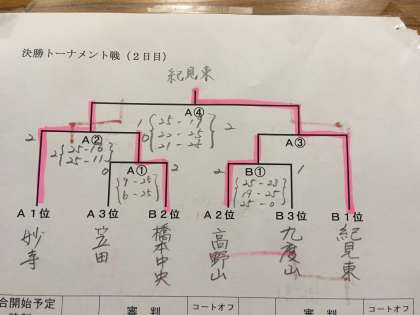 決勝トーナメント戦（２日目）
紀見東
A④
1 25-19 2
22-25
21-25
2 A② A③
2 25-16 0
25-11
0 A① 2 2 B① 1
9-25 25-23
6-25 19-25
25-0
A１位 A３位 B２位 A２位 B３位 B１位
妙寺 笠田 橋本中央 高野山 九度山 紀見東
合開始予定 審判 コートオフ 審判 コートオフ